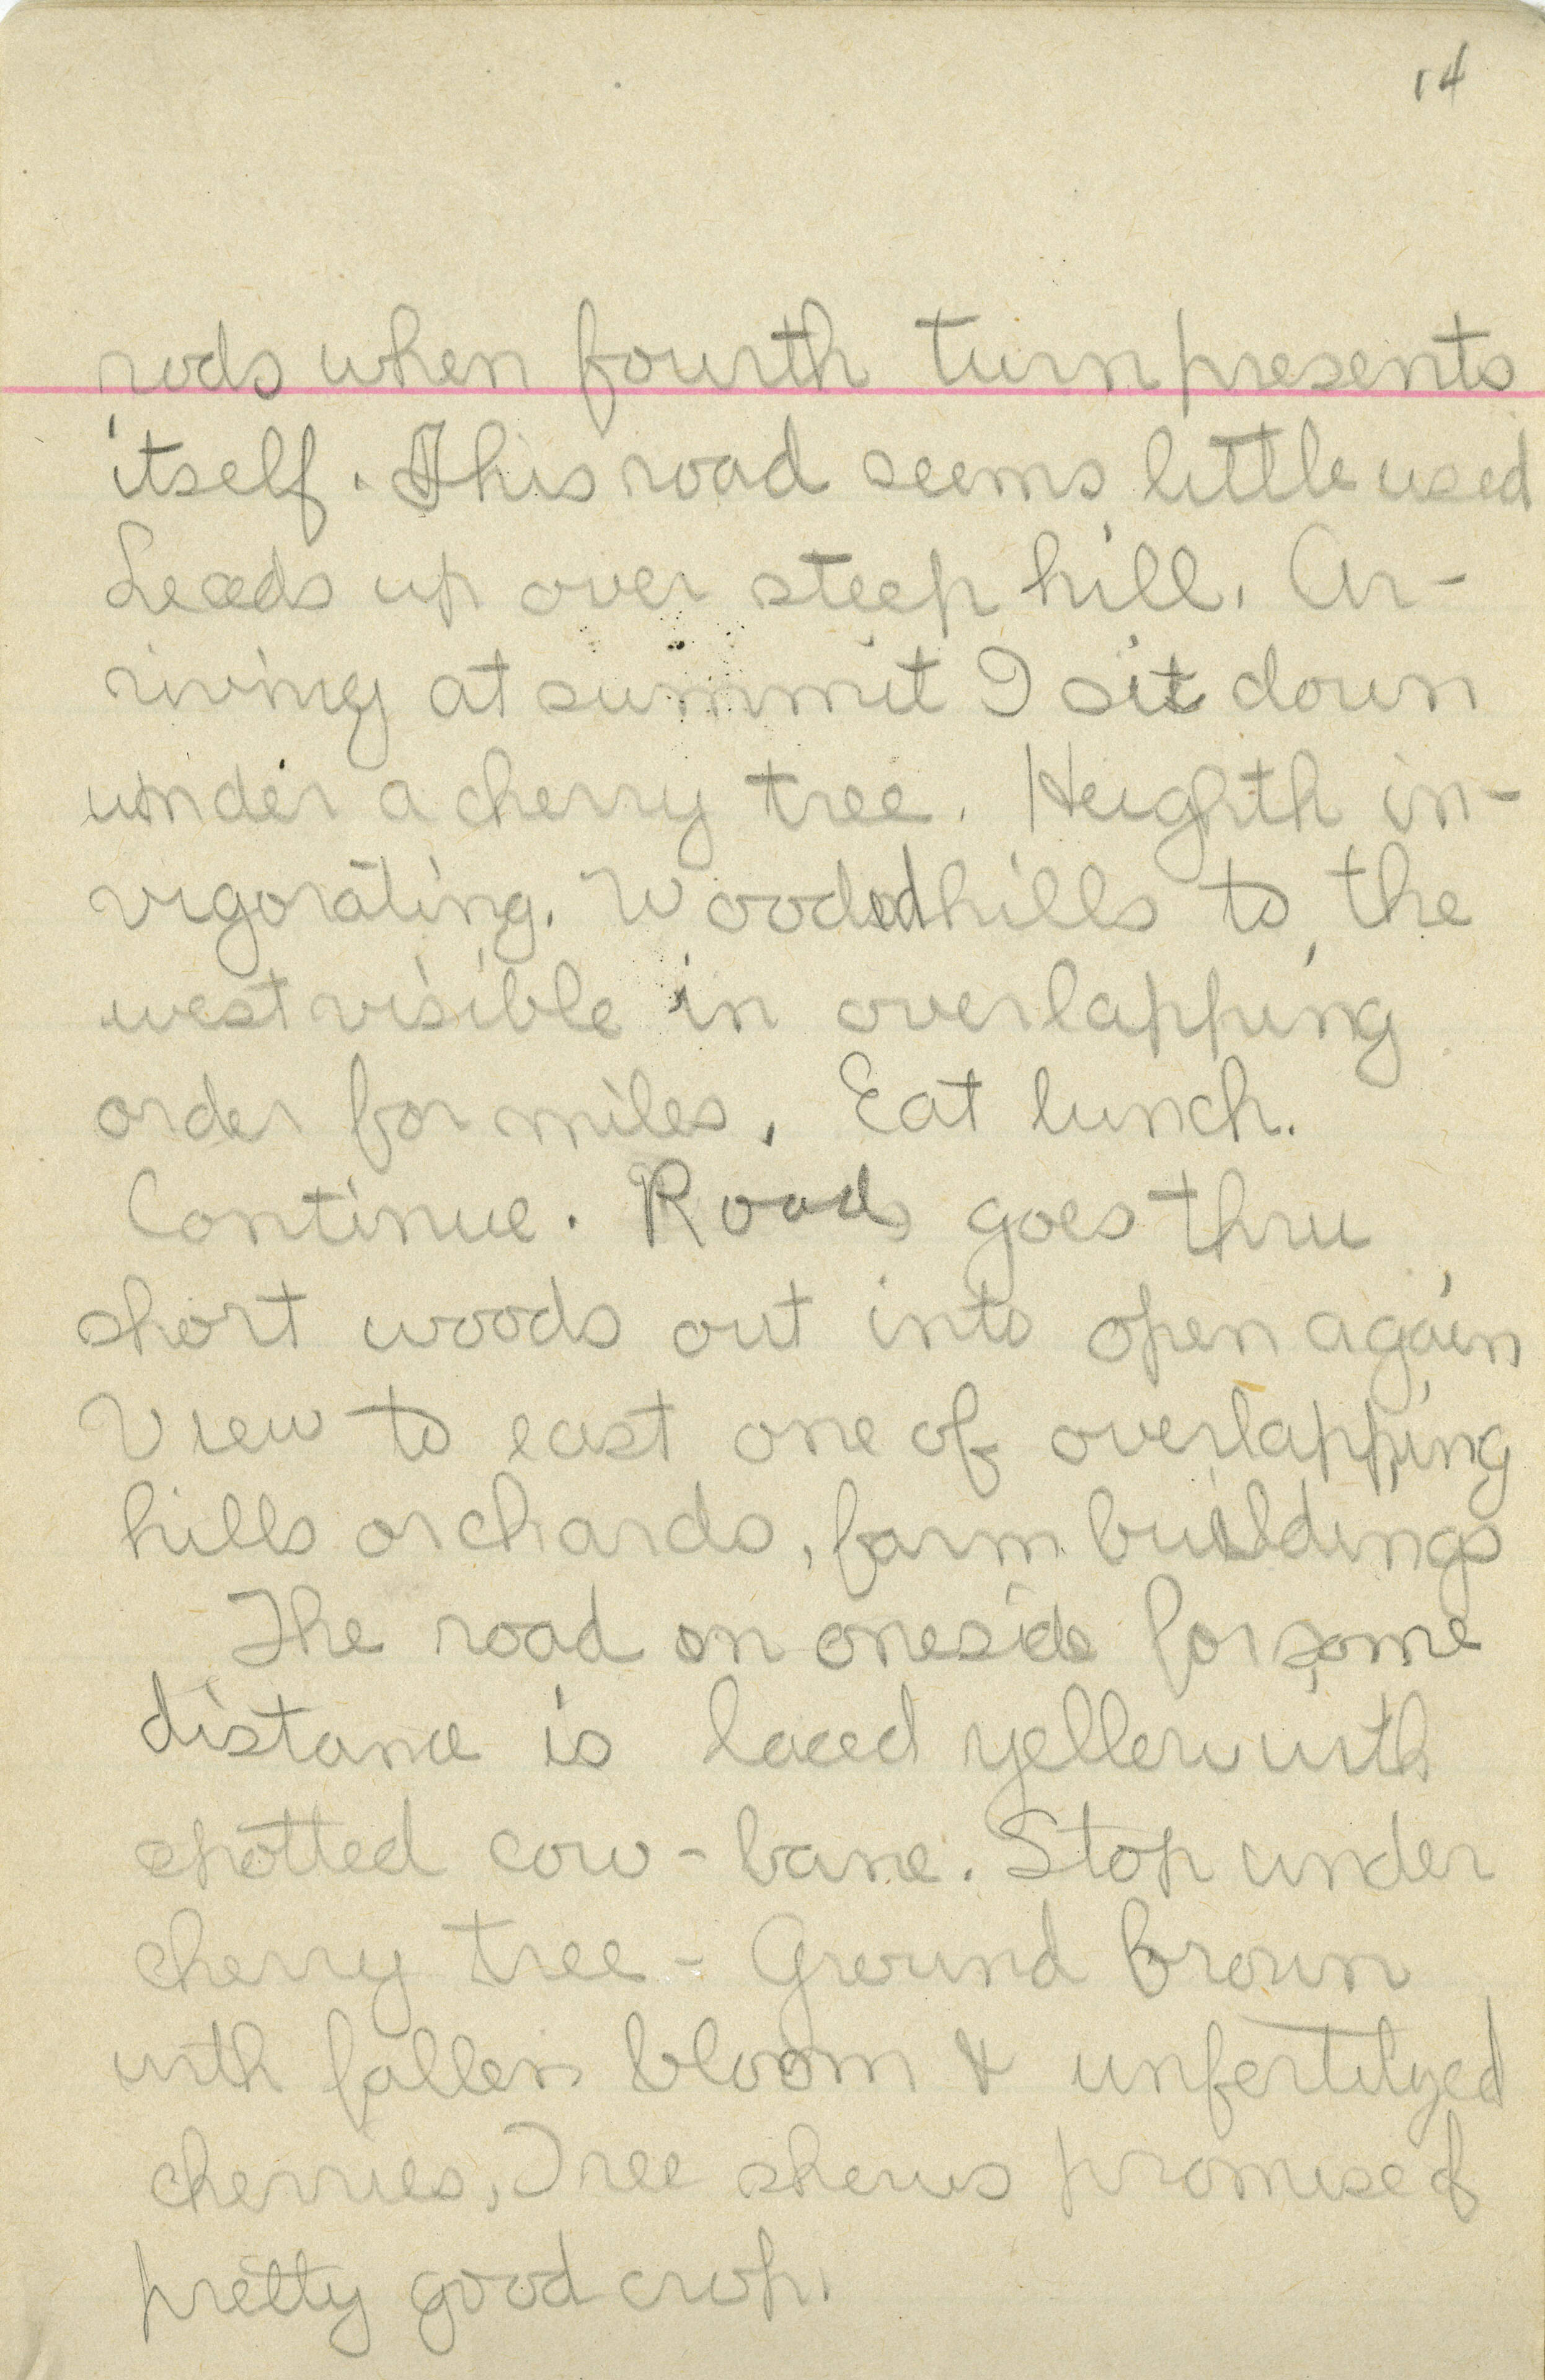 14
rods when fourth turn presents
itself. This road seems little used
Leads up over steep hill. Ar-
riving at summit I sit down
under a cherry tree. Heighth in-
vigorating. Wooded hills to the
west visible in overlapping
order for miles. Eat lunch.
Continue. Road goes thru
short woods out into open again
View to east one of overlapping
hills orchards, farm buildings
The road on one side for some
distance is laced yellow with
spotted cow-bane. Stop under
cherry tree - Ground brown
with fallen bloom & unfertilyed
cherries, Tree shews promise of
pretty good crop.